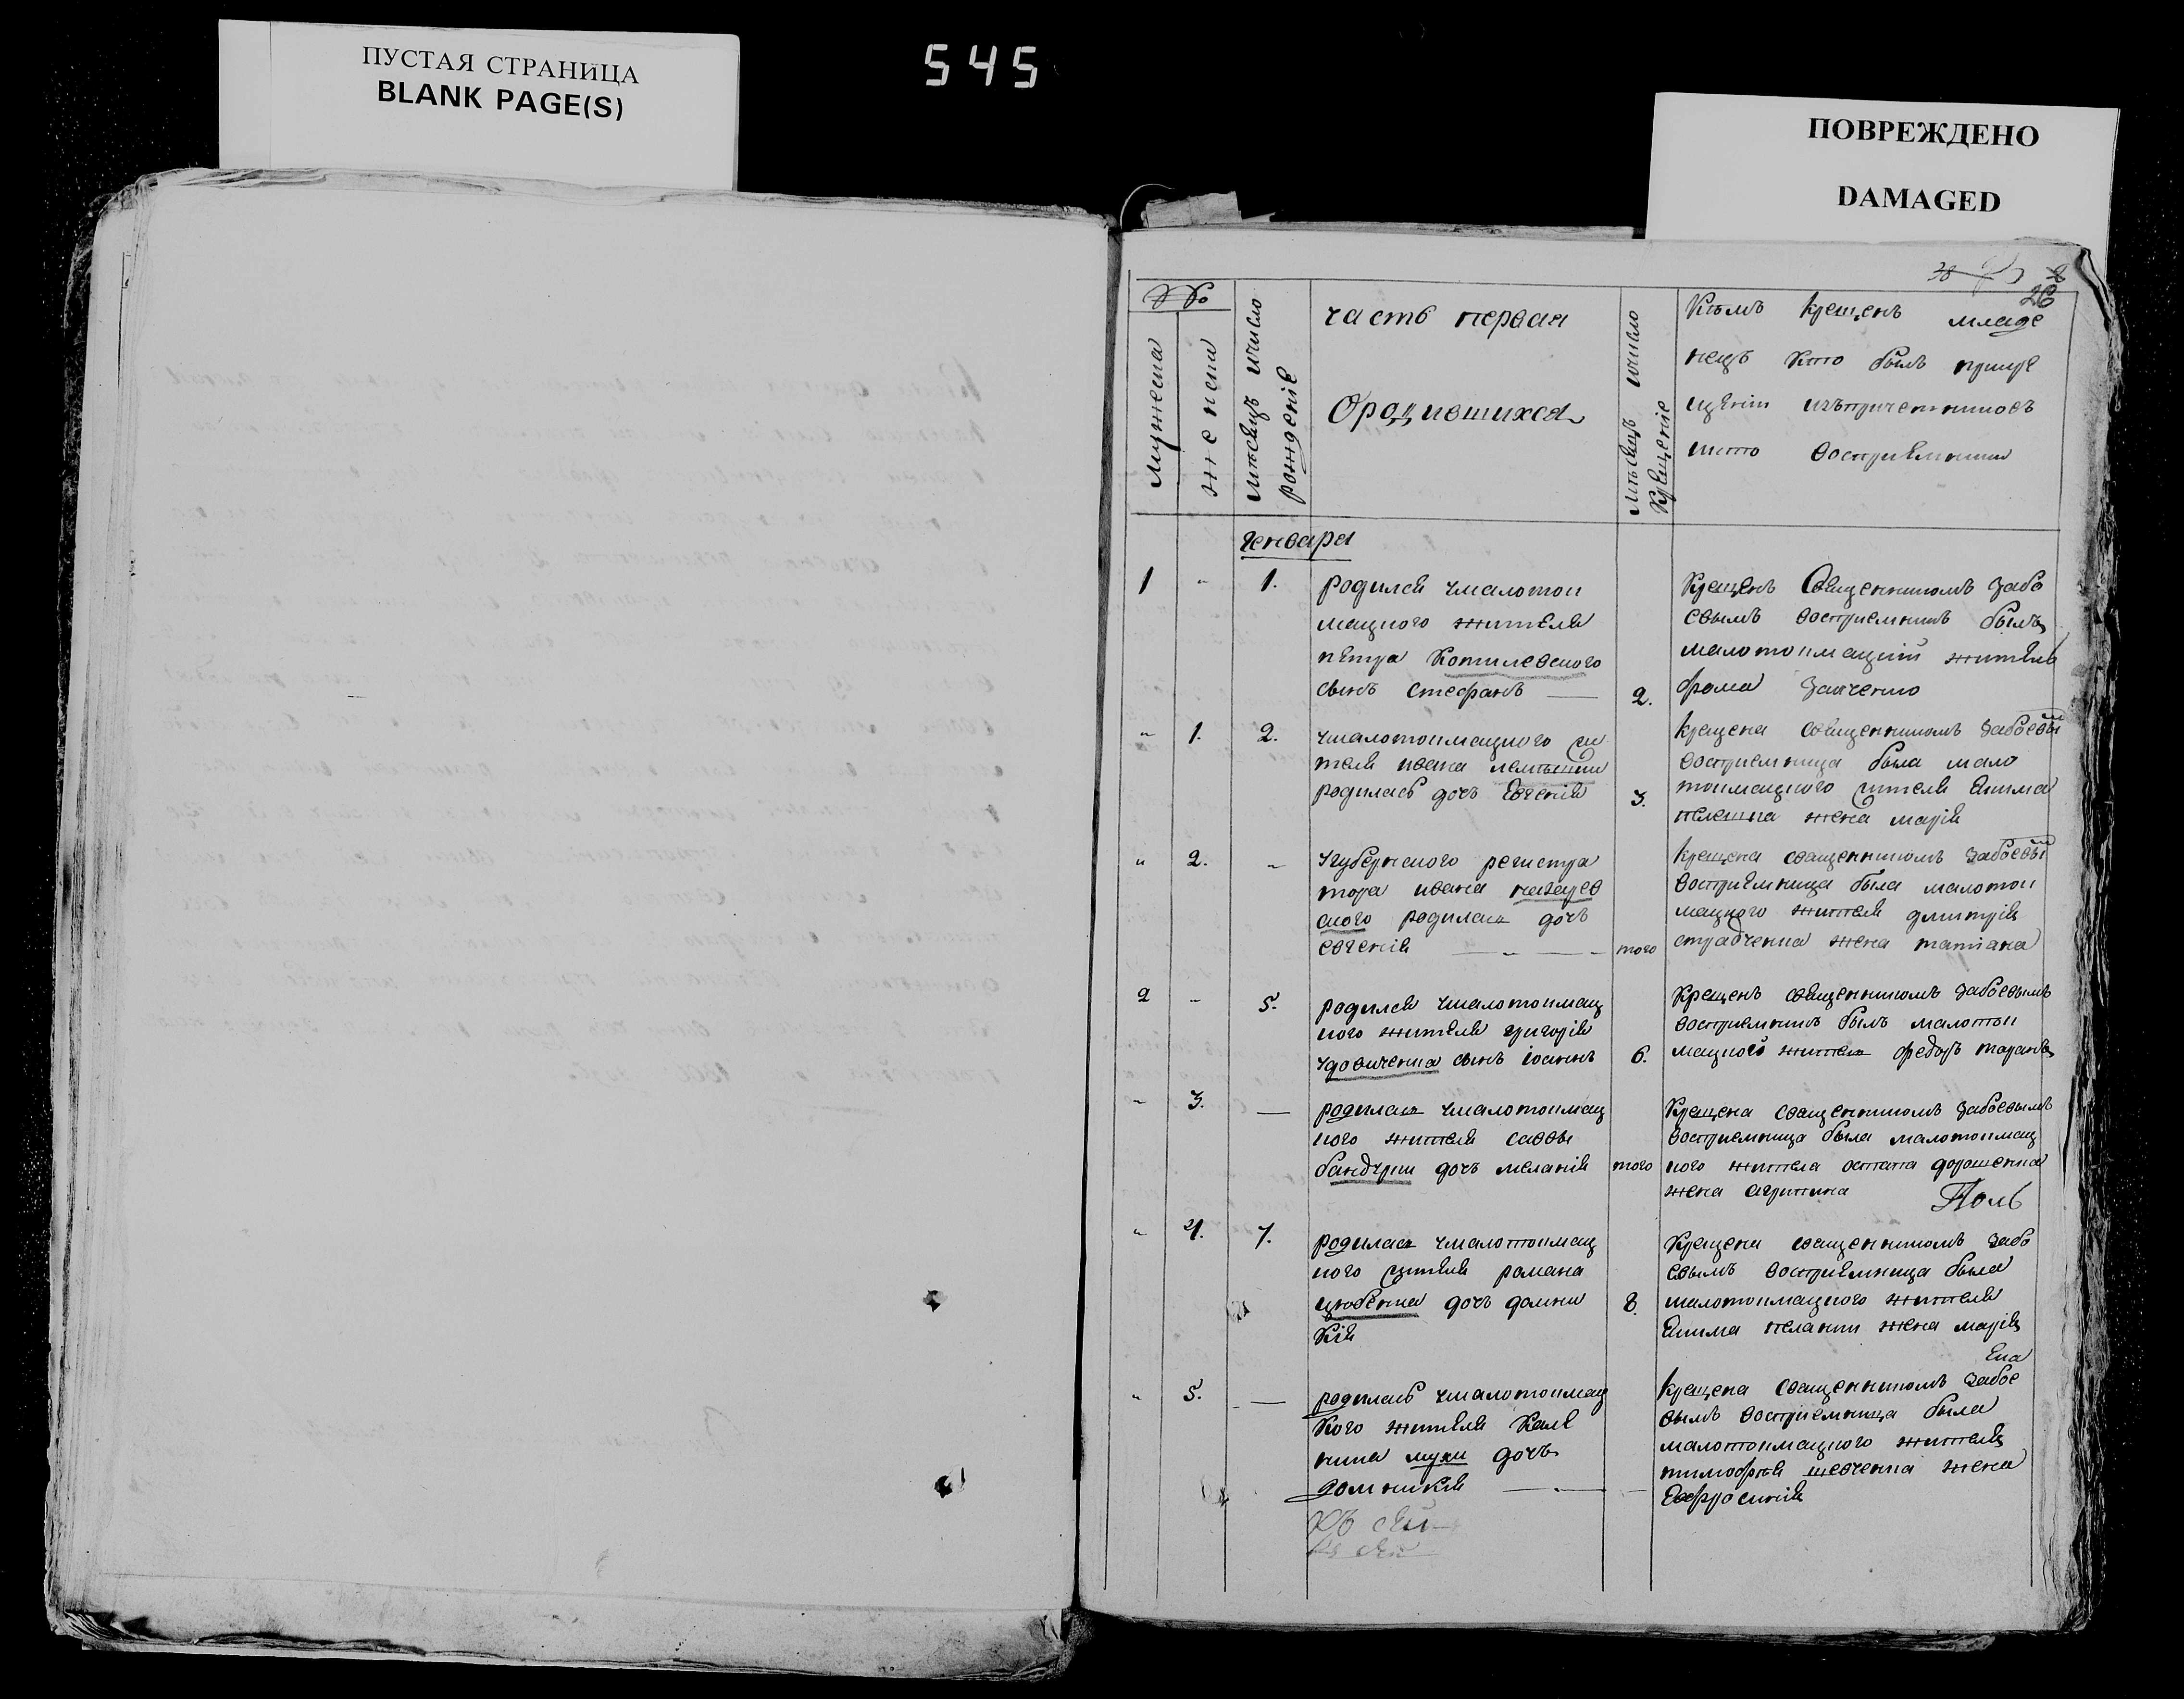 ПУСТАЯ СТРАНИЦА
BLANK PAGE(S)
545
ПОВРЕЖДЕНО
DAMAGED
38
26
№№
мужеска
женска
месяцъ ичисло
рожденiе
часть первая
Ородившихся
месяцъ ичисло
Крещенiе
Кемъ крещенъ младе
нецъ кто былъ прище
щенiи изъпричетниковъ
икто восприемники
генваря
1 " 1. родился умалотои
мацкого жителя
петра Котилевского
сынъ стефанъ — 2.
Крещенъ Священникомъ забо
евымъ восприемникъ былъ
малотоимацкiй житель
фома заиченко
" 1. 2. умалотоимацкого жи
теля ивана
родилась дочъ Евгенiя 3.
крещена священникомъ забоевым
восприемница была мало
тоимацкого жителя Екима
жена марiя
" 2. " Угубернского регистра
тора ивана
ского родилась дочъ
евгенiя — " — " того
крещена священникомъ забоевым
восприемница была малотои
мацкого жителя дмитрiя
жена татiана
2 " 5. родился умалотоимац
кого жителя григорiя
удовиченка сынъ iоаннъ 6.
Крещенъ священникомъ забоевымъ
восприемникъ былъ малотои
мацкой житель федоръ таранъ
" 3. — родилась умалотоимац
кого жителя саввы
бандури дочъ меланiя того
Крещена священникомъ забоевымъ
восприемница была малотоимац
кого жителя остапа дорошенка
жена агрипина
" 4. 7. родилась умалотоимац
кого жителя романа
дочъ домни
кiя 8.
Крещена священникомъ забо
евымъ восприемница была
малотоимацкого жителя
Екима жена марiя
" 5. — родилась умалотоимац
кого жителя Кали
ника мухи дочъ
домникiя — " —
крещена священникомъ забое
вымъ восприемница была
малотоимацкого жителя
тимофея шевченка жена
Евфросинiя